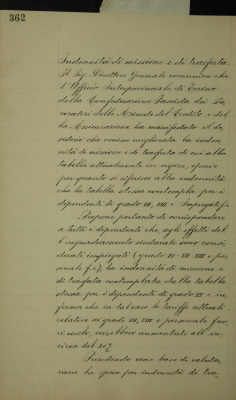 362
Indennità di missione e di trasferta
Il Sig. Direttore Generale comunica che
l'Ufficio Interprovinciale di Torino
della Confederazione Fascista dei La-
voratori delle Aziende del Credito e del-
la Assicurazione ha manifestato il de-
siderio che venisse migliorata la inden-
nità di missione e di trasferta di cui alla
tabella attualmente in vigore, specie
per quanto si riferisce alle indennità
che la tabella stessa contempla per i
dipendenti di grado VII, VIII e
Propone pertanto di corrispondere
a tutti i dipendenti che, agli effetti del-
l'inquadramento sindacale sono consi-
derati impiegati (grado VI - VII - VIII e per-
sonale f.r.), la indennità di missione e
di trasferta contemplata dalla tabella
stessa per i dipendenti di grado e in-
forma che in tal caso le tariffe attuali
relative ai gradi VII, VIII e personale fuo-
ri ruolo, verrebbero aumentate all' in-
circa del 30%
Prendendo come base di valuta-
zione la spesa per indennità di tra-